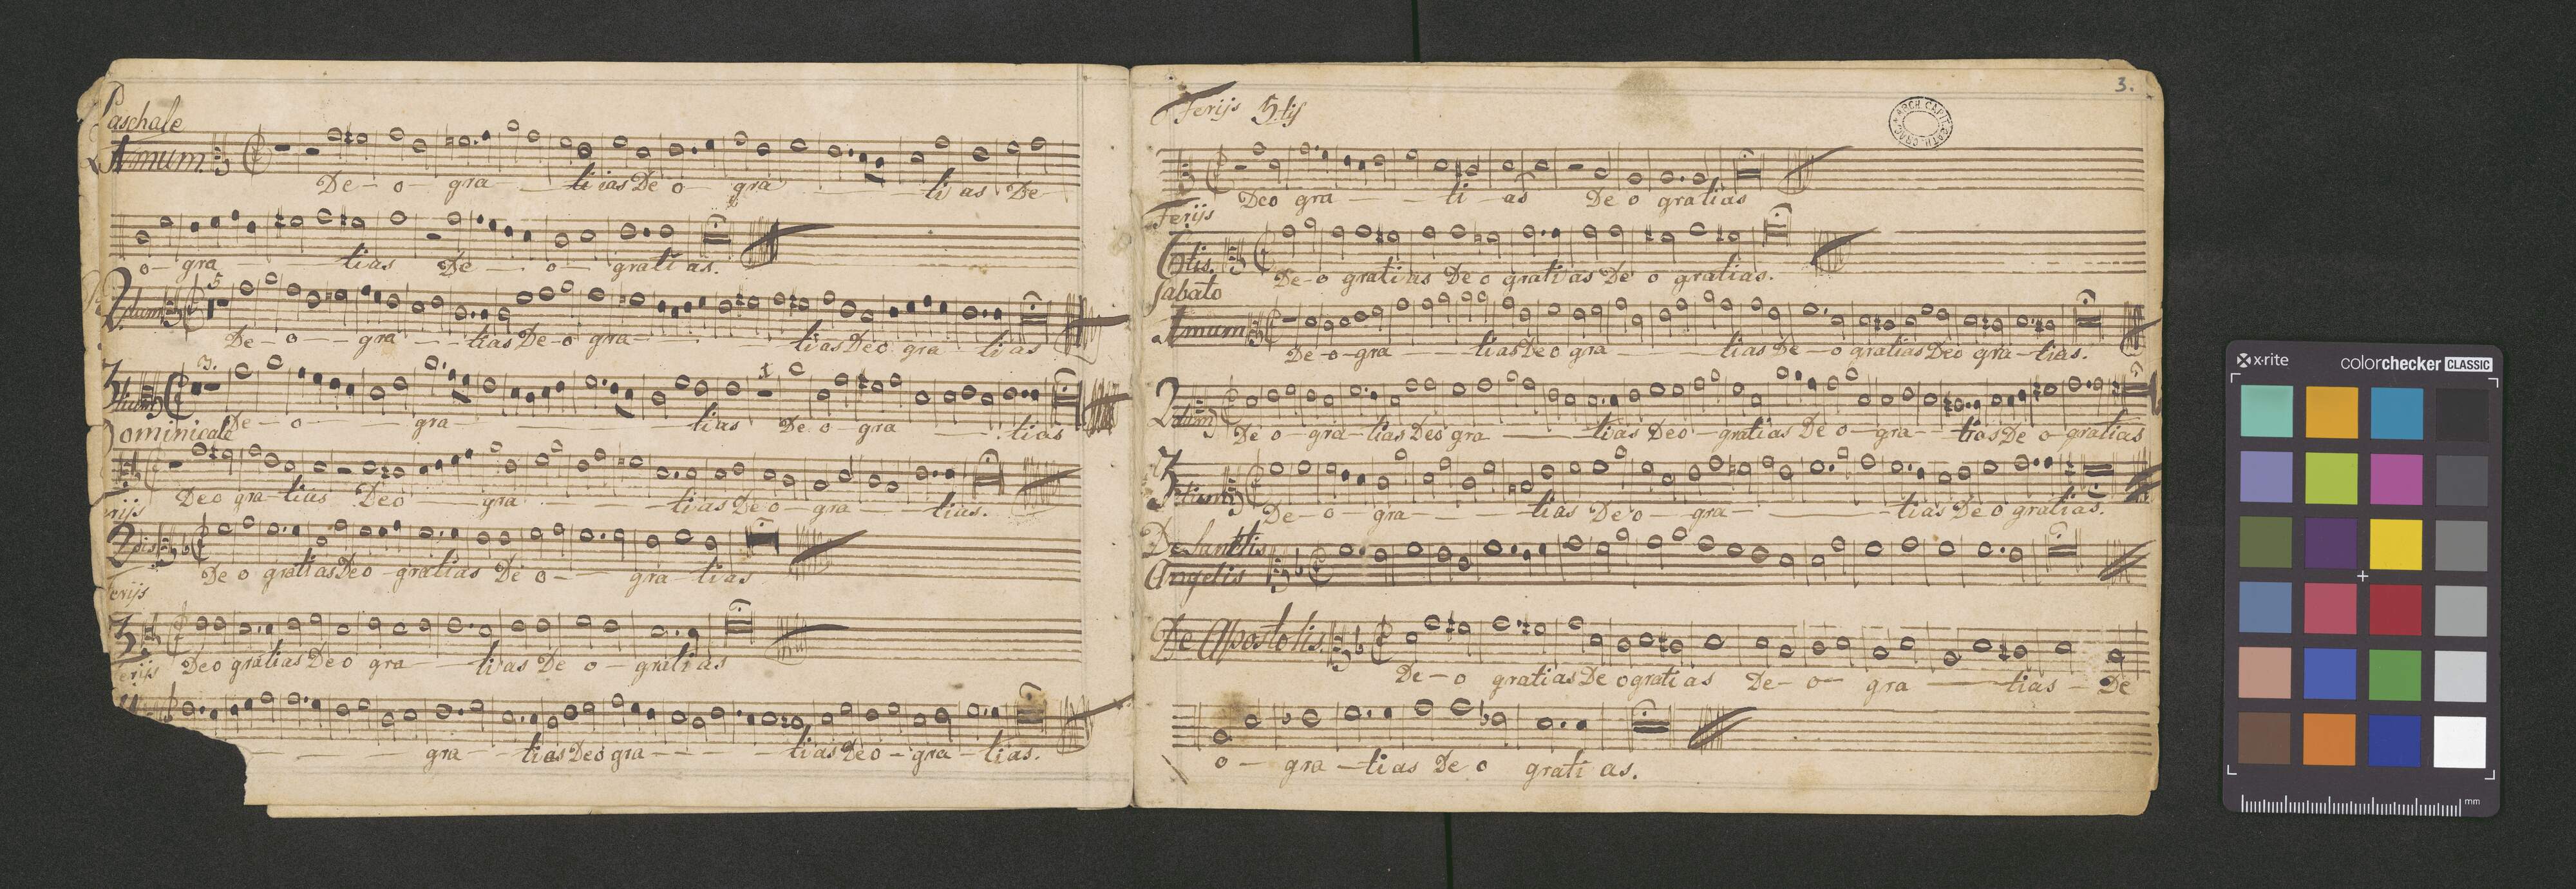 Paschale
1mum.
De - o - gra - ti ias De o - gra - ti as De
o - gra - tias De - o - grati as.
2dum 5
De - o - gra - tias De - o gra - tias Deo gra - ti as
3tium 3. 1
De - o - gra - tias De o - gra - tias
Dominicale
Deo gra - tias Deo - gra - tias De o - gra - tias.
rijs
2dis
De o gratias Deo - gratias De o - gra - tias
Ferijs
3
Deo gratias De o gra - tias De o - grati as
Ferijs
gra - tias Deo gra - tias Deo - gra - tias.
3.
Ferijs 5.tis
ARCH. CAPIT. CATH. CRAC.
Deo gra - ti - as De o gratias
Ferijs
6tis.
De - o gratias De o gratias De o gratias.
Sabato
1mum
De - o - gra - tias De o gra - tias De - o gratias Deo gra - tias.
2dum
De o - gra - tias Deo gra - tias Deo - gratias De o - gra - tias De o - gratias
3tium
De - o - gra - tias De o - gra - tias De o gratias.
De Sanctis
Angelis
De Apostolis.
De - o gratias De o grati as De - o - gra - tias - De
o - gra - ti as De o grati as.
x-rite colorchecker CLASSIC
mm